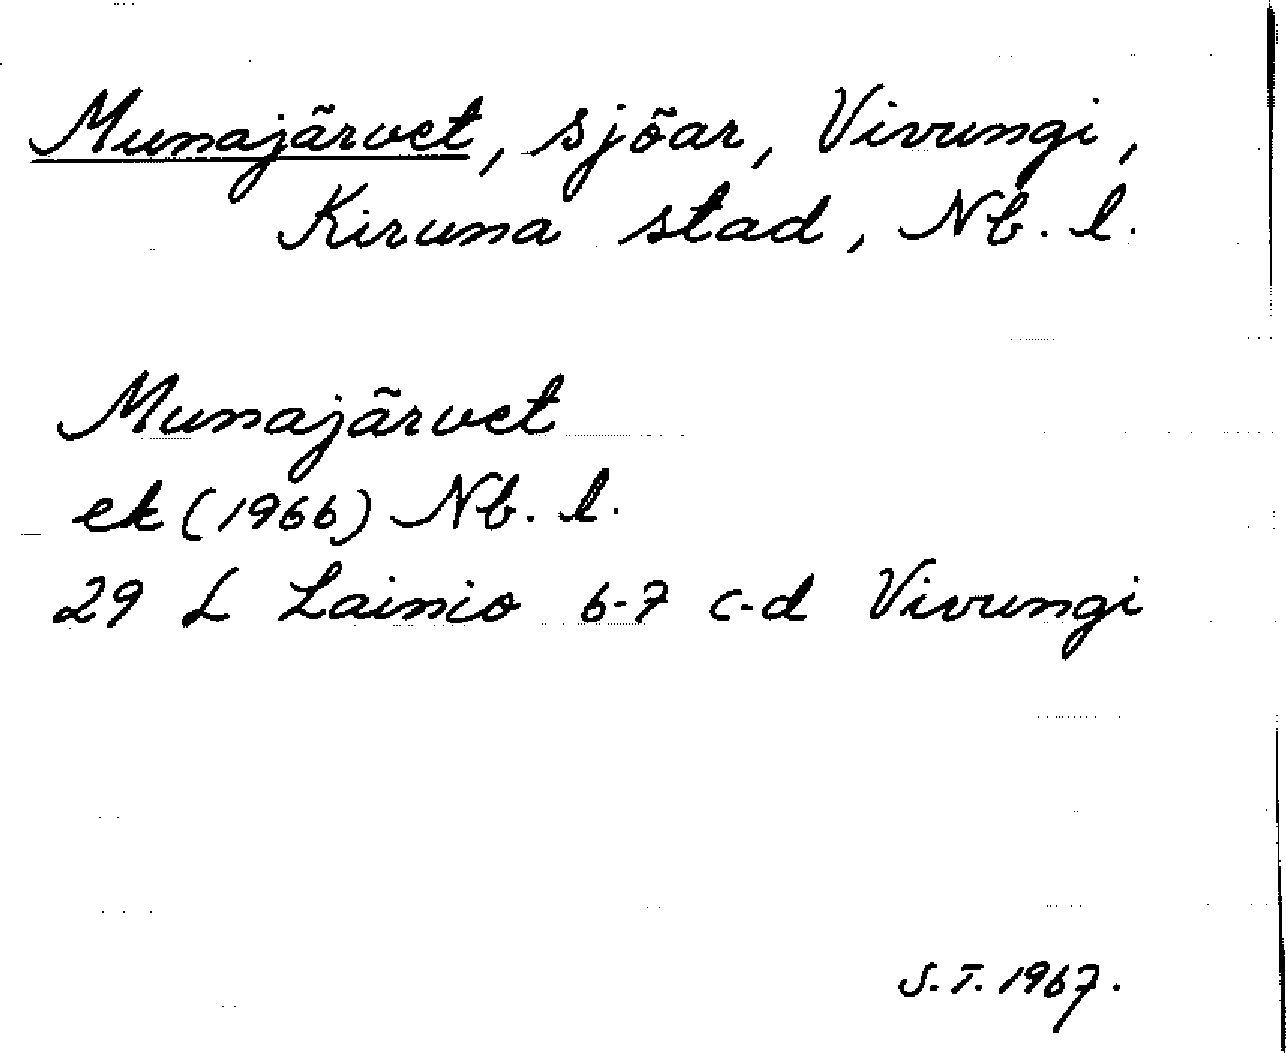 Munajärvet, sjöar, Vivungi,
Kiruna stad, Nb. l.
Munajärvet
ek (1966) Nb. l.
29 L Lainio 6-7 c-d Vivungi
S.T. 1967.